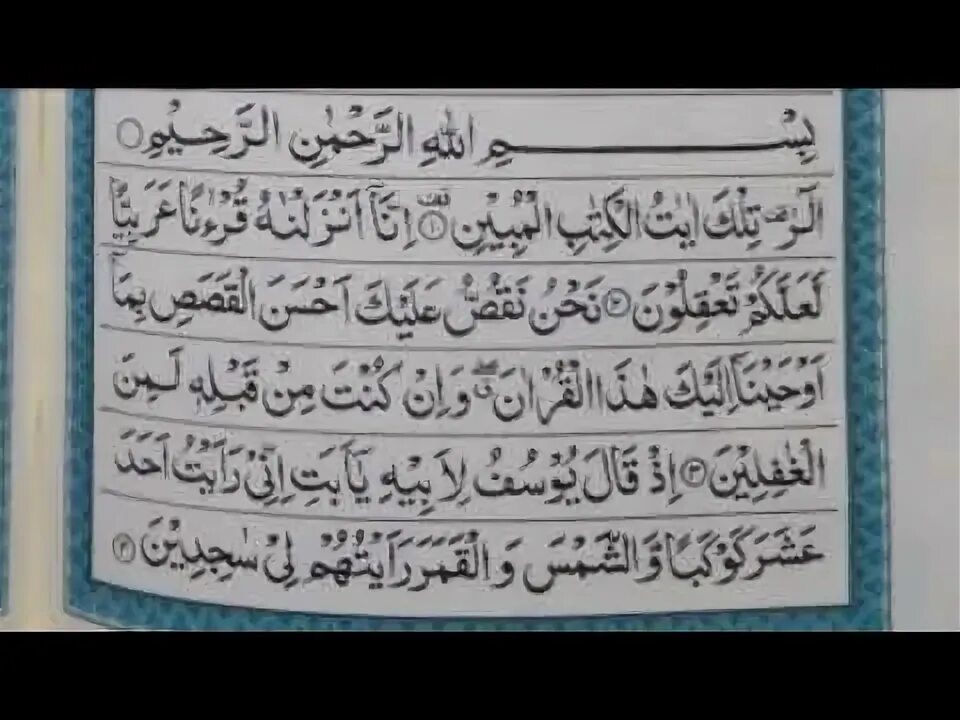 بِسْمِ اللهِ الرَّحْمٰنِ الرَّحِيْمِ
الٓرٰ ۚ تِلْكَ اٰيٰتُ الْكِتٰبِ الْمُبِيْنِ ۝۱ اِنَّاۤ اَنْزَلْنٰهُ قُرْءٰنًا عَرَبِيًّا
لَّعَلَّكُمْ تَعْقِلُوْنَ ۝۲ نَحْنُ نَقُصُّ عَلَيْكَ اَحْسَنَ الْقَصَصِ بِمَاۤ
اَوْحَيْنَاۤ اِلَيْكَ هٰذَا الْقُرْاٰنَ ۖ وَ اِنْ كُنْتَ مِنْ قَبْلِهٖ لَمِنَ
الْغٰفِلِيْنَ ۝۳ اِذْ قَالَ يُوْسُفُ لِاَبِيْهِ يٰۤاَبَتِ اِنِّيْ رَاَيْتُ اَحَدَ
عَشَرَ كَوْكَبًا وَّ الشَّمْسَ وَ الْقَمَرَ رَاَيْتُهُمْ لِيْ سٰجِدِيْنَ ۝۴